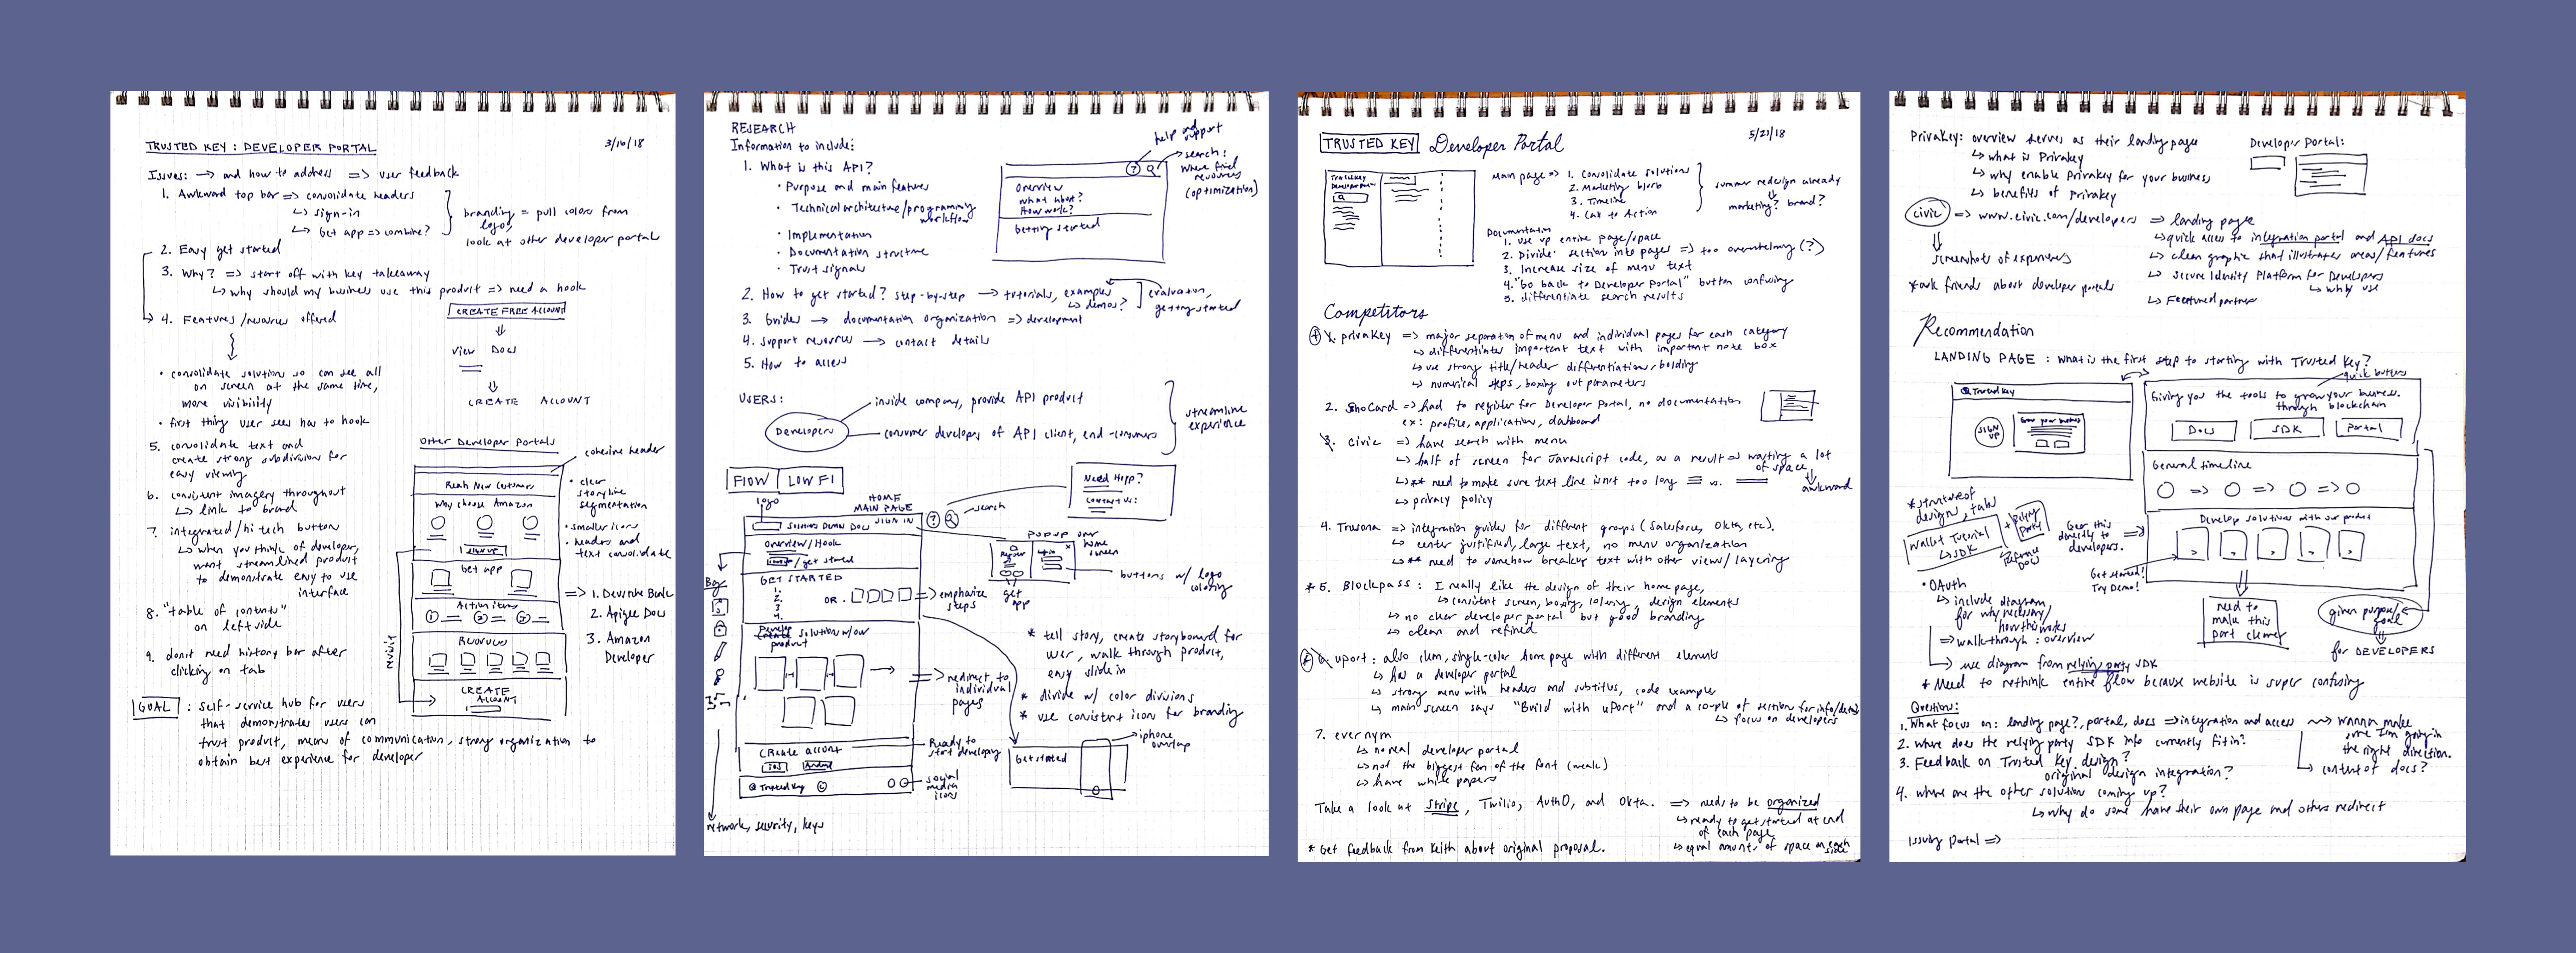 TRUSTED KEY : DEVELOPER PORTAL
3/16/18
Issues: → and how to address => user feedback
1. Awkward top bar => consolidate headers
↳ sign-in
↳ Get app => combine?
branding = pull colors from logo,
look at other developer portal
2. Easy get started
3. Why? => start off with key takeaway
↳ why should my business use this product => need a hook
4. Features/resources offered
• consolidate solution so can see all
on screen at the same time,
more visibility
• first thing user sees has to hook
5. consolidate text and
create strong subdivision for
easy viewing
6. consistent imagery throughout
↳ link to brand
7. integrated/hi tech button
↳ when you think of developer,
want streamlined product
to demonstrate easy to use
interface
8. "table of contents"
on left side
9. don't need history bar after
clicking on tab
CREATE FREE ACCOUNT
View Docs
CREATE ACCOUNT
Other Developer Portals
cohesive header
Reach New Customers
Why choose Amazon
SIGN UP
Get app
Action items
① ② ③
Resources
CREATE
ACCOUNT
• clear
storyline
segmentation
• smaller icons
• headers and
text consolidate
=> 1. Describe Basic
2. Apigee Docs
3. Amazon
Developer
GOAL : self-service hub for users
that demonstrates users can
trust product, means of communication, strong organization to
obtain best experience for developer
RESEARCH
Information to include:
1. What is this API?
• Purpose and main features
• Technical architecture/programming
workflow
• Implementation
• Documentation structure
• Trust signals
help and
support
search:
where find
resources
(optimization)
Overview
What about?
How work?
Getting started
2. How to get started? step-by-step → tutorials, examples
↳ demos?
evaluation,
getting started
3. Guides → documentation organization => development
4. Support resources → contact details
5. How to access
USERS:
Developers
inside company, provide API product
consumer developers of API client, end-consumers
streamline
experience
FLOW | LOW FI
logo
HOME
MAIN PAGE
search
Need Help?
Contact Us:
SIGN IN
Overview/Hook
/get started
GET STARTED
1.
2.
3.
4.
OR
=> emphasize
steps
POPUP over
home
screen
get
app
buttons w/ logo
coloring
Develop solution w/ our
product
=> redirect to
individual
pages
* tell story, create storyboard for
user, walk through product,
easy slide in
* divide w/ color divisions
* use consistent icon for branding
Create account
iOS Android
Ready to
start developing
Trusted Key
social
media
icons
Get started
iphone
overlap
network, security, keys
TRUSTED KEY Developer Portal
5/21/18
Main page => 1. Consolidate solutions
2. Marketing blurb
3. Timeline
4. Call to Action
summer redesign already
marketing? brand?
Documentation
1. Use up entire page/space
2. Divide section into pages => too overwhelming (?)
3. Increase size of menu text
4. "Go back to Developer Portal" button confusing
5. differentiate search results
Competitors
1. Privakey => major separation of menu and individual pages for each category
↳ differentiates important text with important note box
↳ use strong title/header differentiation, bolding
↳ numerical steps, boxing out parameters
2. ShoCard => had to register for Developer Portal, no documentation
ex: profile, application, dashboard
3. Civic => have search with menu
↳ half of screen for Javascript code, as a result => wasting a lot
of space
↳ ** need to make sure text line isn't too long vs.
awkward
↳ privacy policy
4. Trusona => integration guides for different groups (Salesforce, Okta, etc).
↳ center justified, large text, no menu organization
↳ ** need to somehow breakup text with other view/layering
* 5. Blockpass : I really like the design of their home page,
↳ consistent screen, boxing, coloring, design elements
↳ no clear developer portal but good branding
↳ clean and refined
6. uport : also clean, single-color home page with different elements
↳ has a developer portal
↳ strong menu with headers and subtitles, code examples
↳ main screen says "Build with uPort" and a couple of section for info/details
↳ focus on developers
7. evernym
↳ no real developer portal
↳ not the biggest fan of the font (weak)
↳ have white papers
Take a look at Stripe, Twilio, Auth0, and Okta. => needs to be organized
↳ ready to get started at end
of each page
* Get feedback from Keith about original proposal.
↳ equal amounts of space on each
side
Privakey: overview serves as their landing page
↳ what is Privakey
↳ why enable Privakey for your business
↳ benefits of Privakey
Developer Portal:
Civic => www.civic.com/developers => landing page
↳ quick access to integration portal and API docs
↳ clean graphic that illustrates areas/features
↳ Secure Identity Platform for Developers
↳ why use
↳ Featured partners
screenshots of experiences
* ask friends about developer portals
Recommendation
LANDING PAGE : what is the first step to starting with Trusted Key?
quick buttons
Trusted Key
SIGN
UP
Grow your business
Giving you the tools to grow your business.
through blockchain
Docs SDK Portal
General timeline
Develop solutions with our product
* structure of
designs, tabs
Wallet Tutorial
↳ SDK
+ Relying
Party
Gear this
directly to
developers.
Get started!
Try Demo!
• OAuth
↳ include diagram
for why necessary/
how this works
=> walkthrough : overview
↳ use diagram from relying party SDK
need to
make this
part clearer
given purpose/
goal
for DEVELOPERS
* Need to rethink entire flow because website is super confusing
Questions:
1. What focus on: landing page?, portal, docs => integration and access
wanna make
sure I'm going in
the right direction.
2. where does the relying party SDK info currently fit in?
3. Feedback on Trusted Key design?
original design integration?
↳ content of docs?
4. where are the other solution coming up?
↳ why do some have their own page and others redirect
Issuing Portal =>